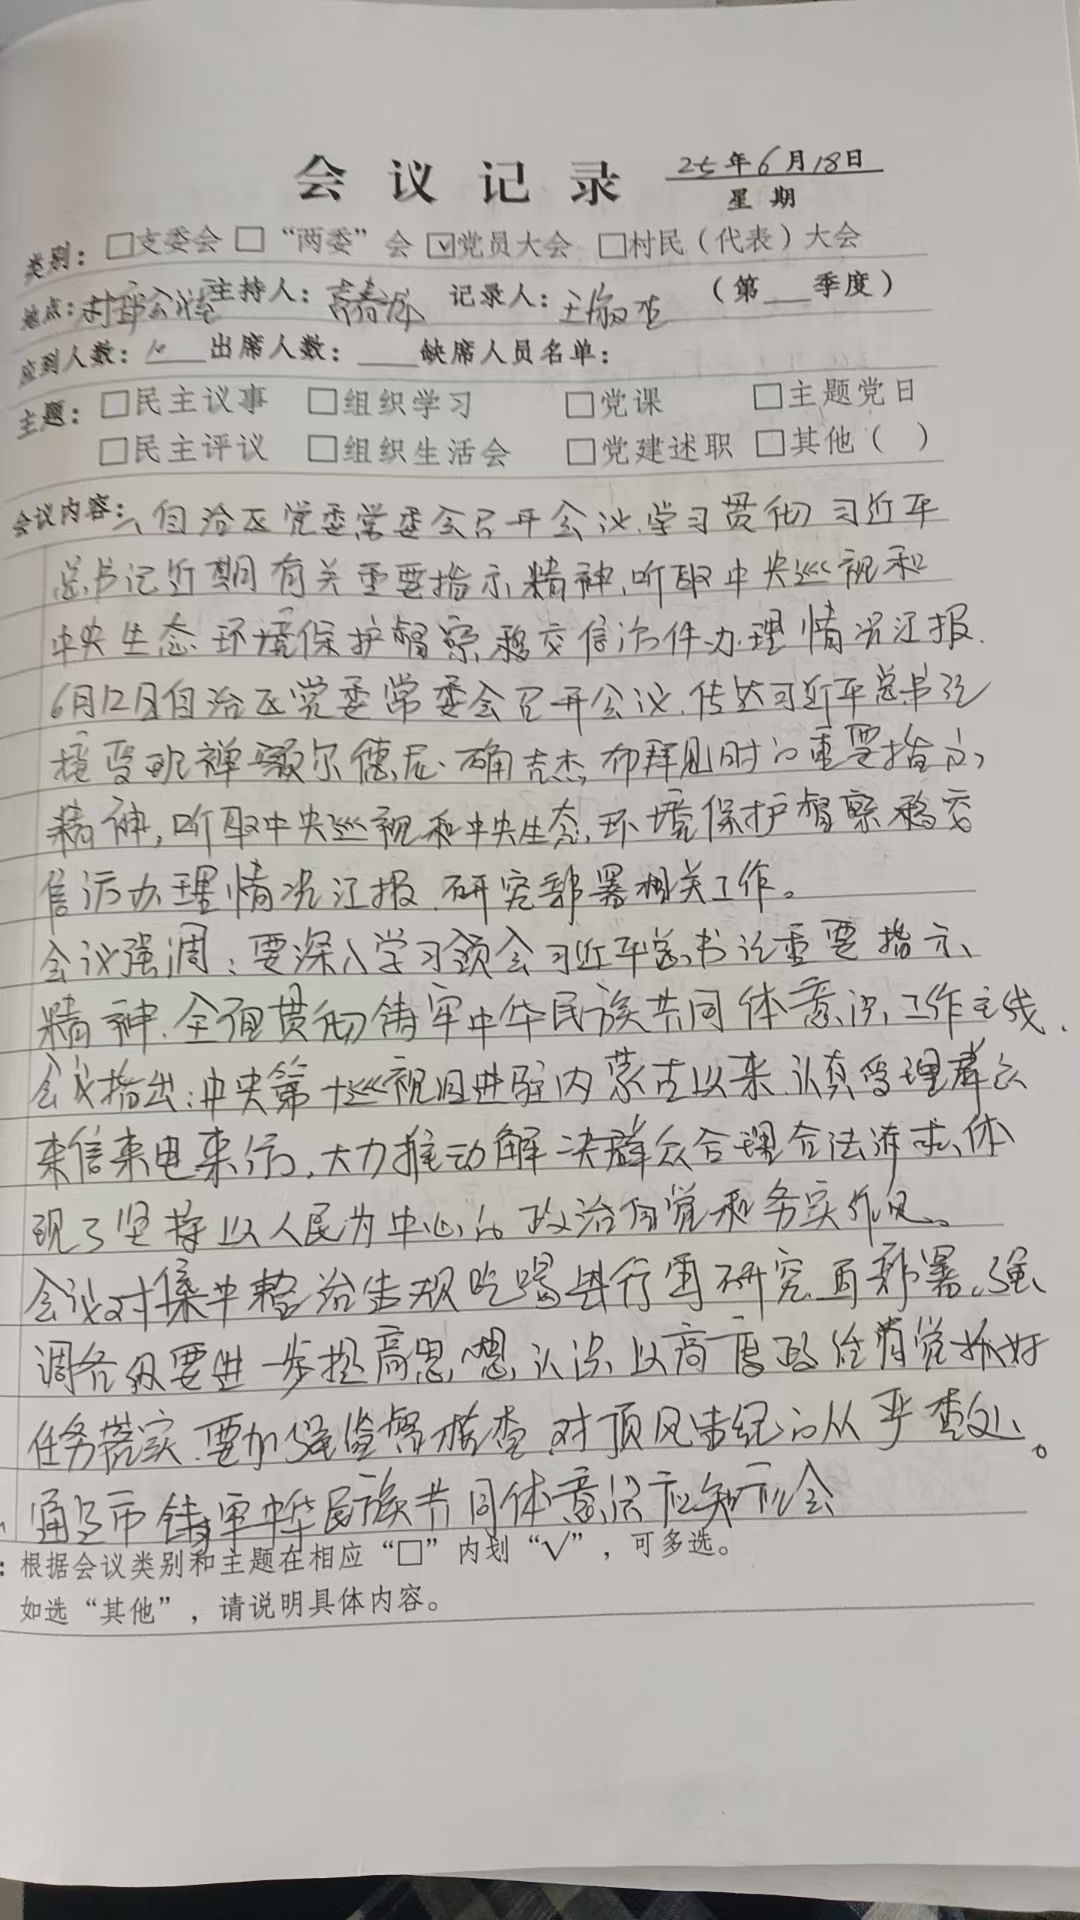 会议记录 25年6月18日
星期
类别：□支委会 □“两委”会 ☑党员大会 □村民（代表）大会
地点：村部会议室 主持人： 记录人： （第___季度）
应到人数：___出席人数：___缺席人员名单：
主题：□民主议事 □组织学习 □党课 □主题党日
□民主评议 □组织生活会 □党建述职 □其他（ ）
会议内容：一、自治区党委常委会召开会议，学习贯彻习近平
总书记近期有关重要指示精神，听取中央巡视和
中央生态环境保护督察移交信访件办理情况汇报.
6月12日自治区党委常委会召开会议，传达习近平总书记
接受班禅额尔德尼·确吉杰布拜见时的重要指示
精神，听取中央巡视和中央生态环境保护督察移交
信访办理情况汇报.研究部署相关工作。
会议强调：要深入学习领会习近平总书记重要指示
精神.全面贯彻铸牢中华民族共同体意识工作主线.
会议指出：中央第十巡视组进驻内蒙古以来，认真受理群众
来信来电来访，大力推动解决群众合理合法诉求，体
现了坚持以人民为中心的政治自觉和务实作风。
会议对集中整治违规吃喝进行再研究再部署，强
调各级要进一步提高思想认识，以高度政治自觉抓好
任务落实.要加强监督检查，对顶风违纪的从严查处。
通辽市铸牢中华民族共同体意识应知应会
：根据会议类别和主题在相应“□”内划“√”，可多选。
如选“其他”，请说明具体内容。